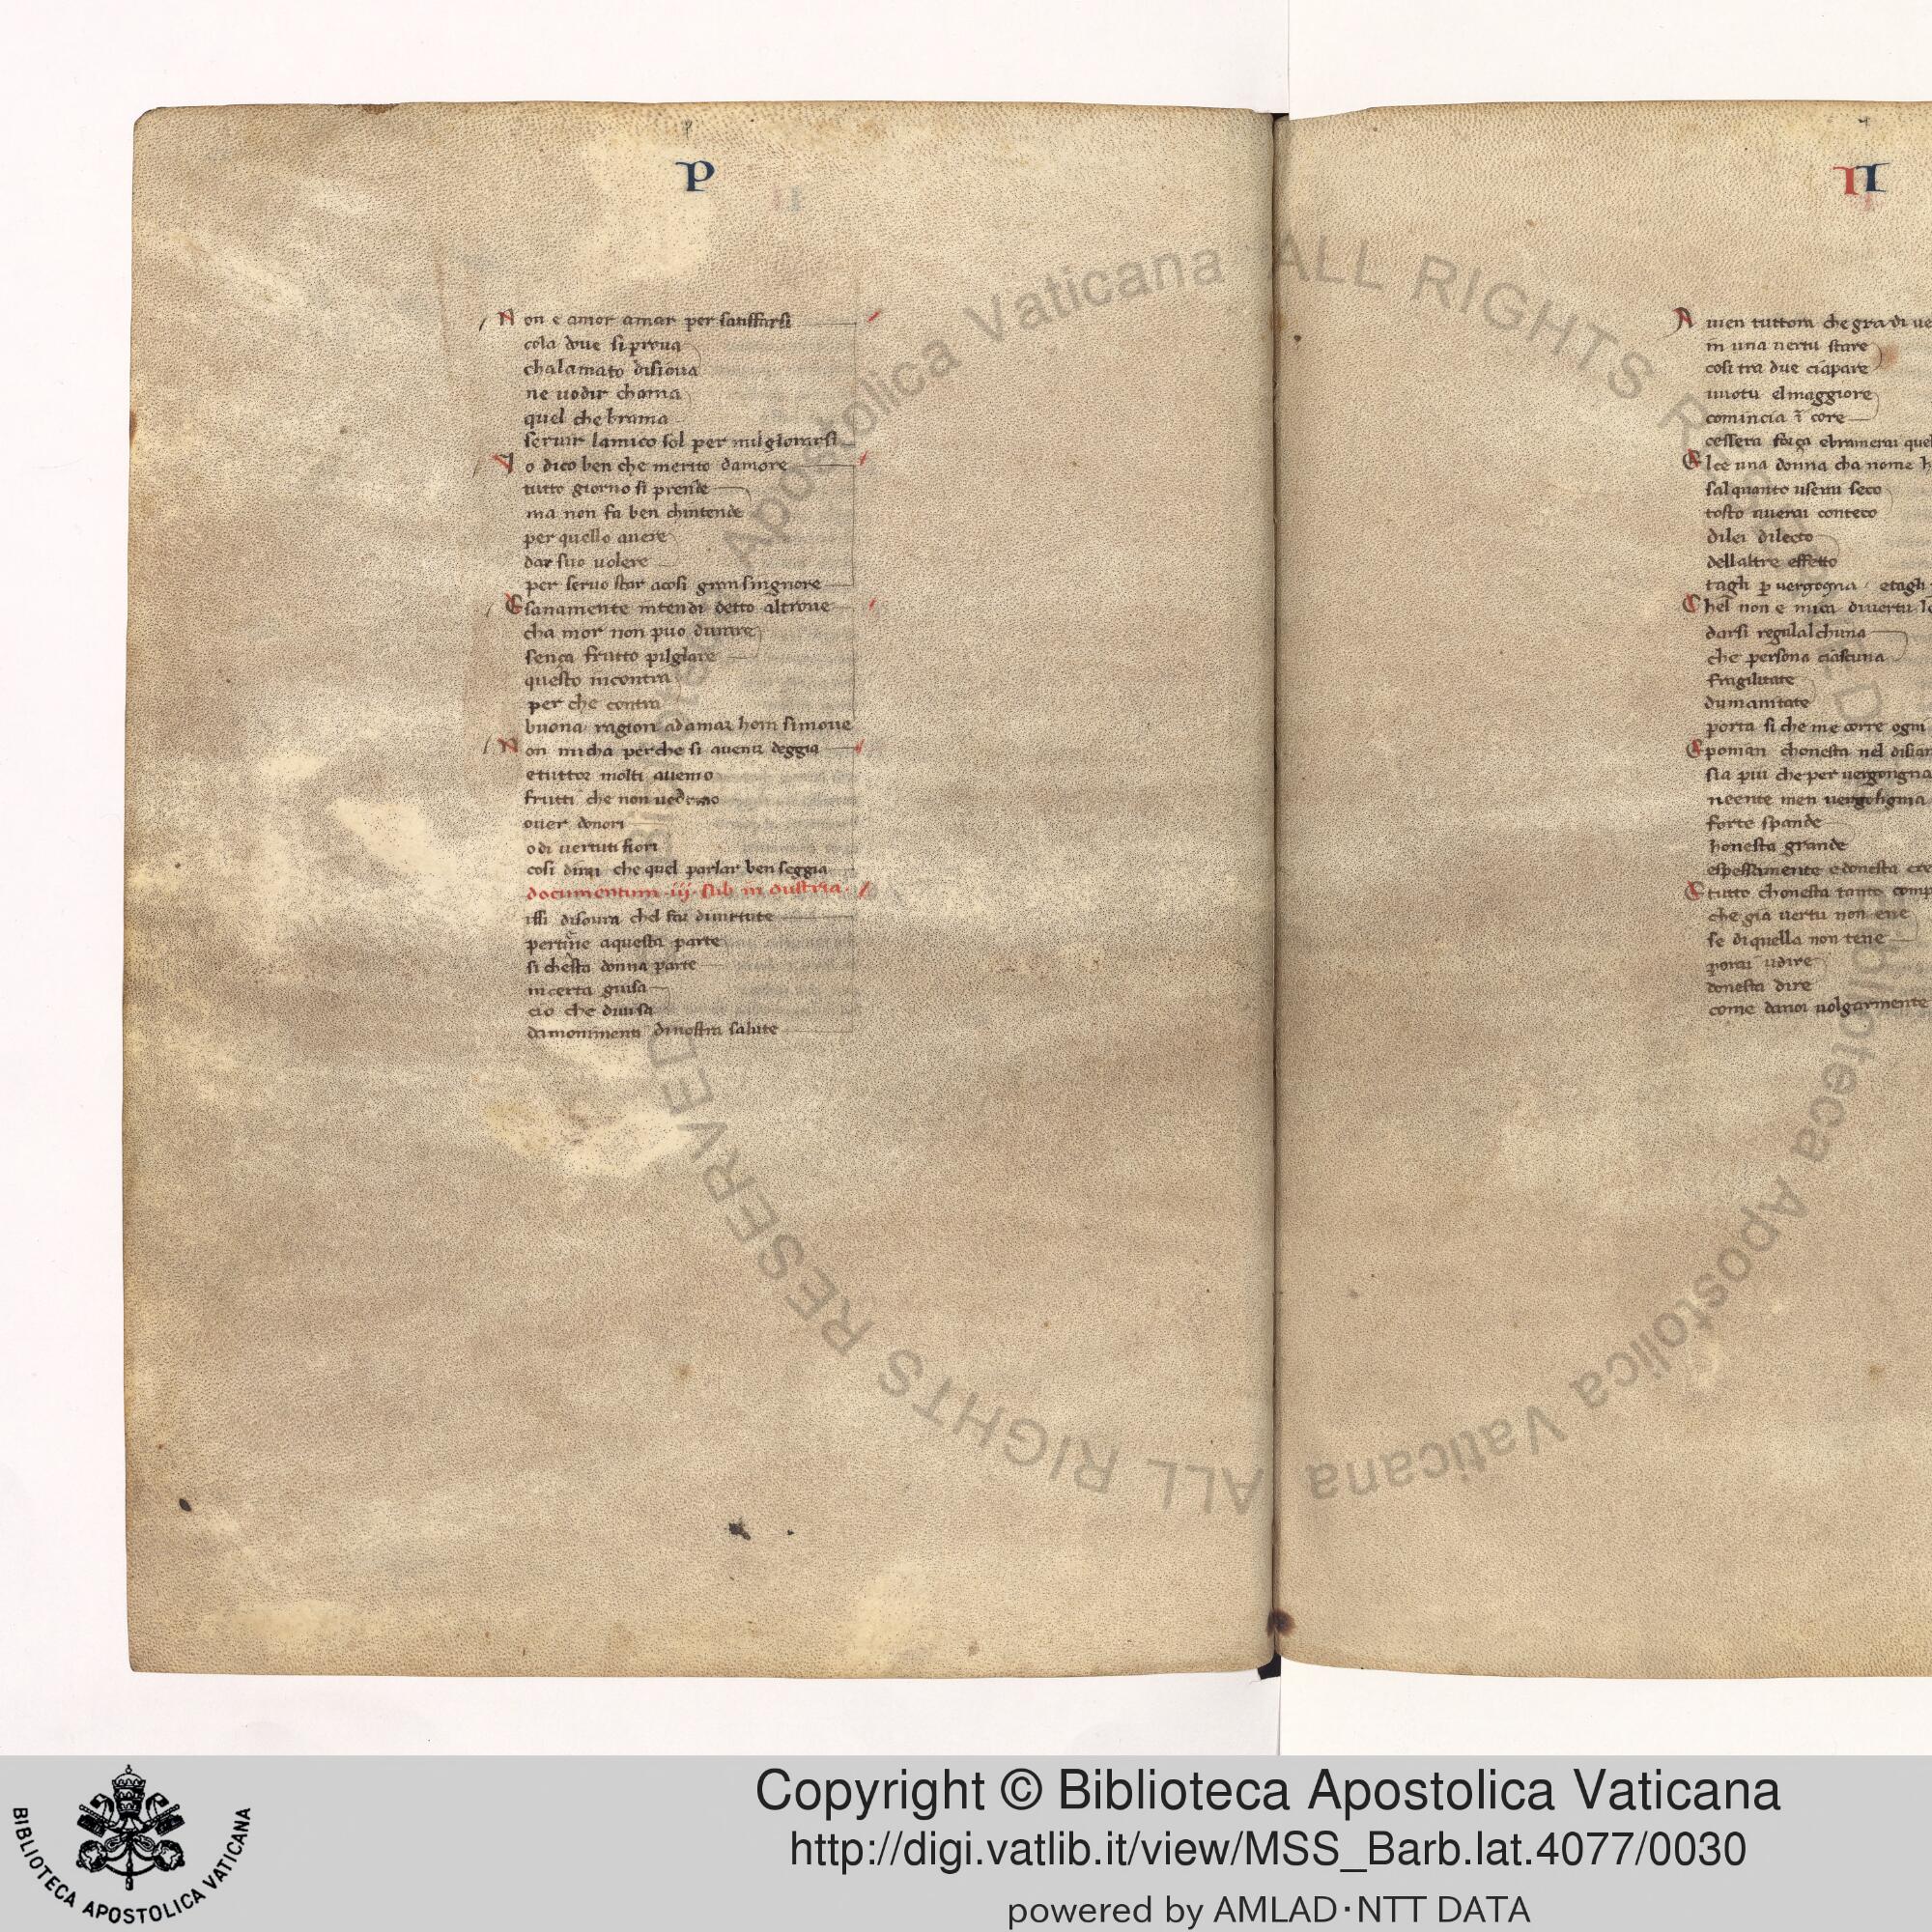 P
N on e amor amar per satisffarsi
cola doue si proua
chalamato disioua
ne uodir chama
quel che brama
seruir lamico sol per milgliorarsi
I o dico ben che merito damore
tutto giorno si prende
ma non fa ben chintende
per quello auere
dar suo uolere
per seruo star acosi gran singnore
E sanamente intendi detto altroue
cha mor non puo durare
sença frutto pilgliare
questo incontra
per che contra
buona ragion ad amar hom si moue
N on micha perche si auenir deggia
etuttor molti auemo
frutti che non uedemo
ouer donori
o di uertuti fiori
cosi dirai che quel parlar ben seggia
documentum .iij. sub industria.
issi disoura chel far diuirtute
pertine aquesta parte
si chesta donna parte
in certa guisa
cio che diuisa
damonimenti dinostra salute
II
A men tuttora che gra di ue
in una uertu stare
cosi tra due ciapare
uuotu el maggiore
comincia ī core
cessera força ebramerai quel
E lce una donna cha nome h
salquanto userai seco
tosto auerai conteco
dilei dilecto
dellaltre effetto
tagli p uergogna etagli
C hel non e mica diuertu le
darsi regulalchuna
che persona ciascuna
fragilitate
dumanitate
porta si che me corre ogni
E poniam chonesta nel disiar
sia piu che per uergongna
neente men uergongna
forte spande
honesta grande
espessamente e donesta cre
E tutto chonesta tanto comp
che gia uertu non ene
se di quella non tene
porai udire
donesta dire
come danoi uolgarmente
Biblioteca Apostolica Vaticana ALL RIGHTS RESERVED
Biblioteca Apostolica Vaticana ALL RIGHTS RESERVED
BIBLIOTECA APOSTOLICA VATICANA
Copyright © Biblioteca Apostolica Vaticana
http://digi.vatlib.it/view/MSS_Barb.lat.4077/0030
powered by AMLAD·NTT DATA